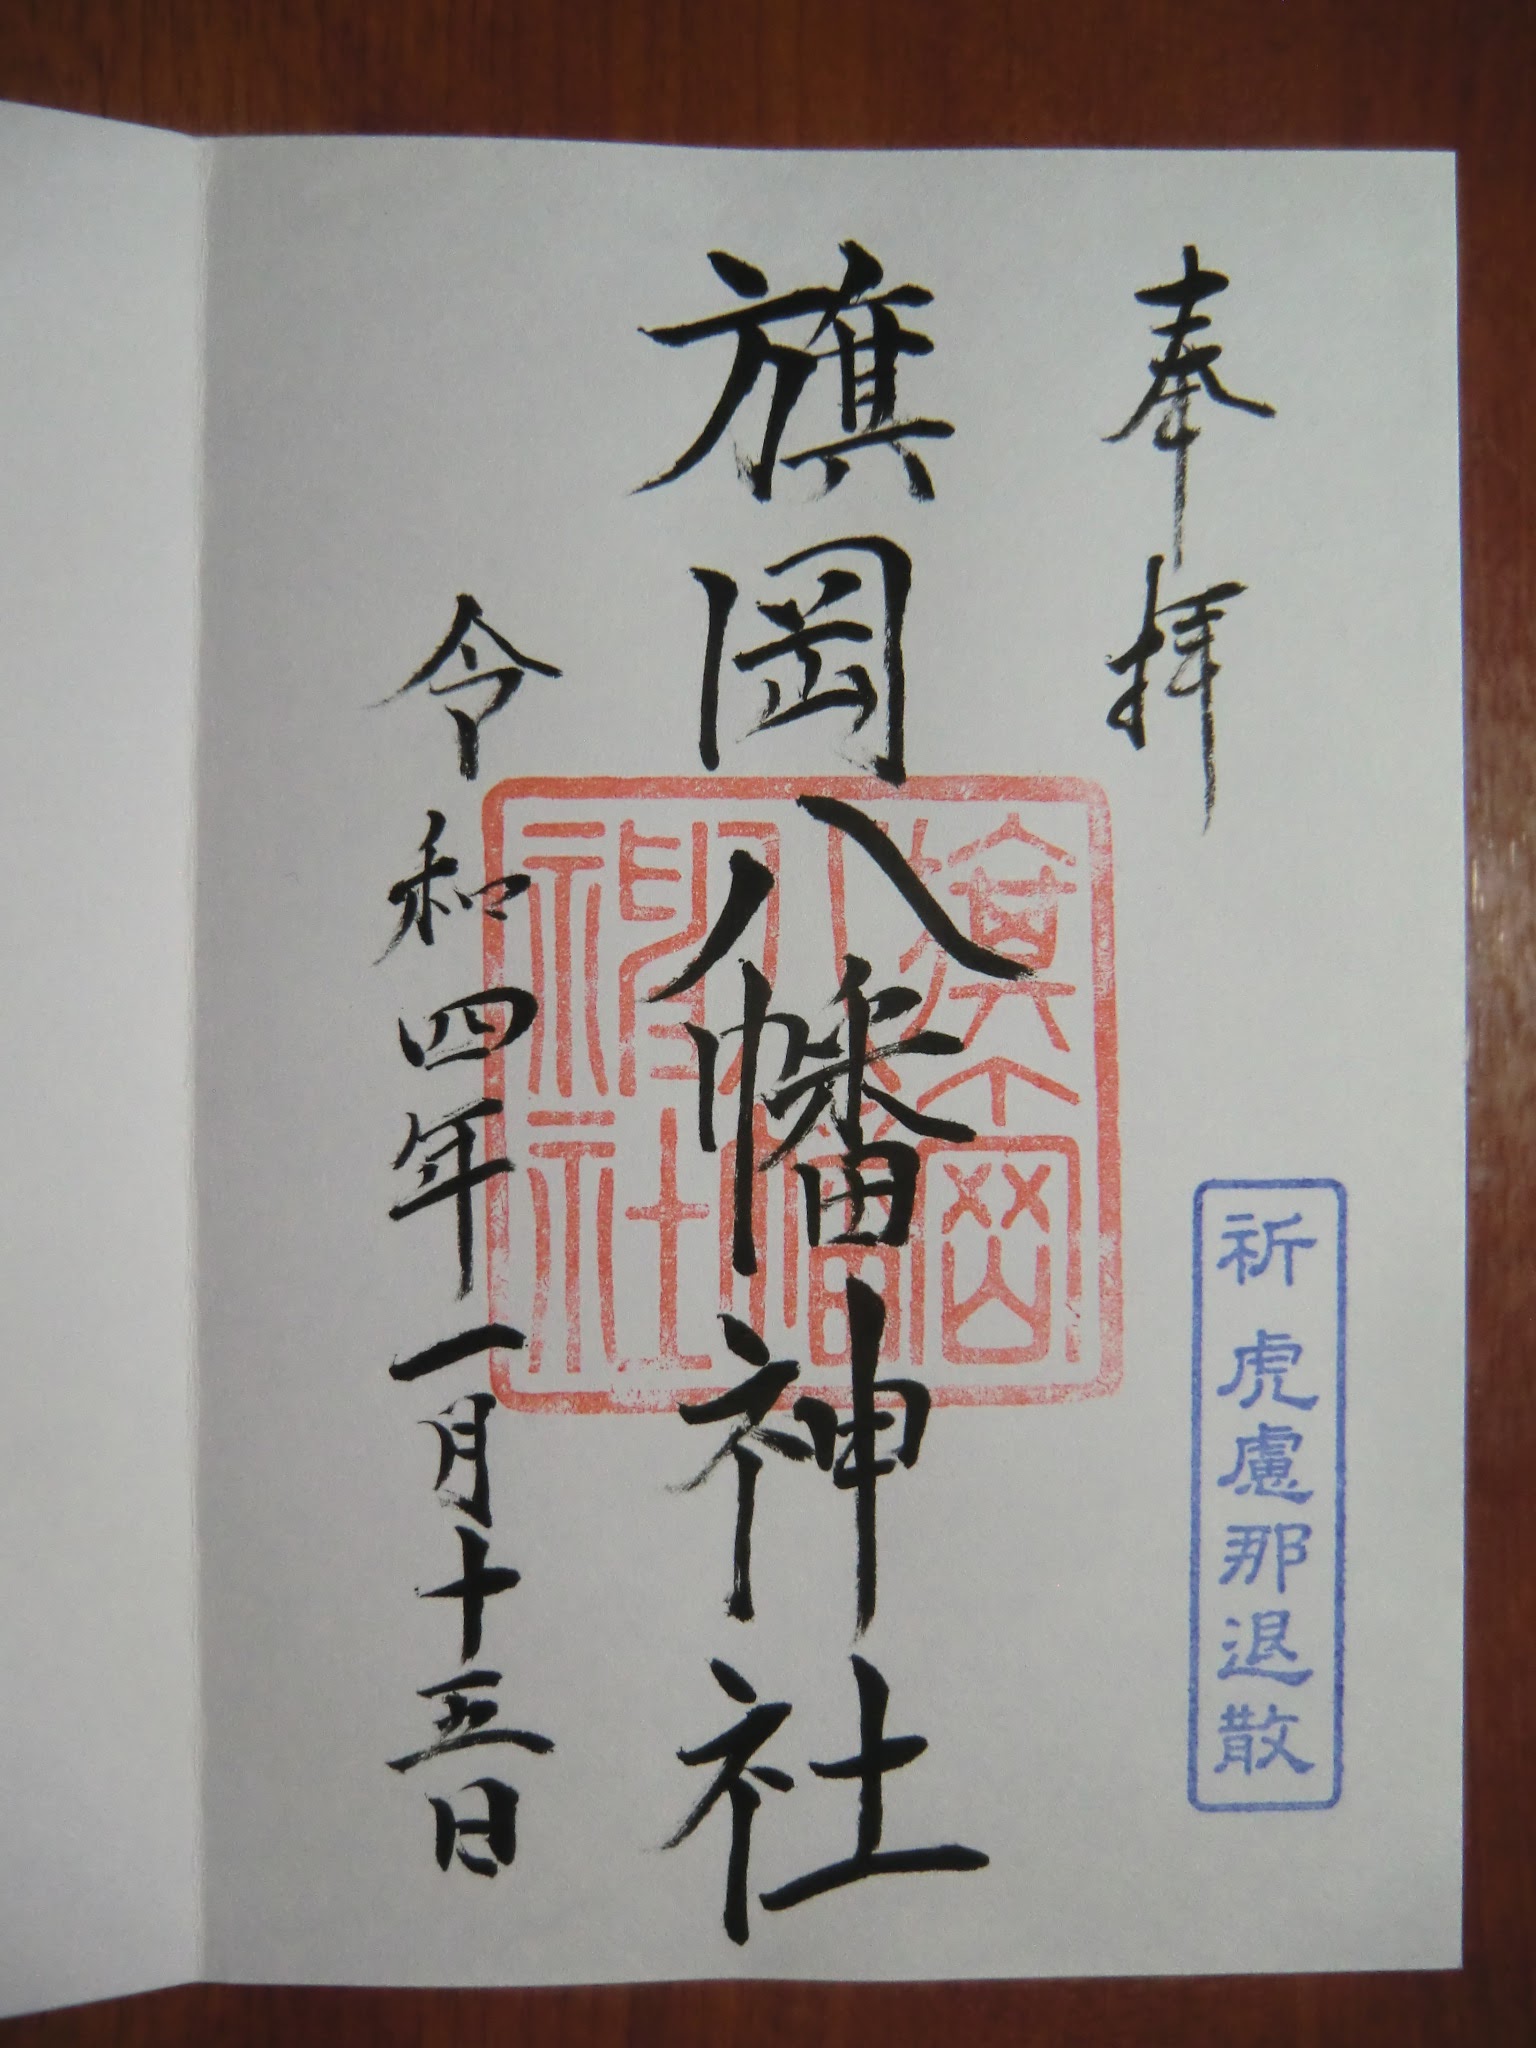 奉拝
祈 虎慮那退散
旗岡八幡神社
旗岡八幡神社
令和四年一月十五日